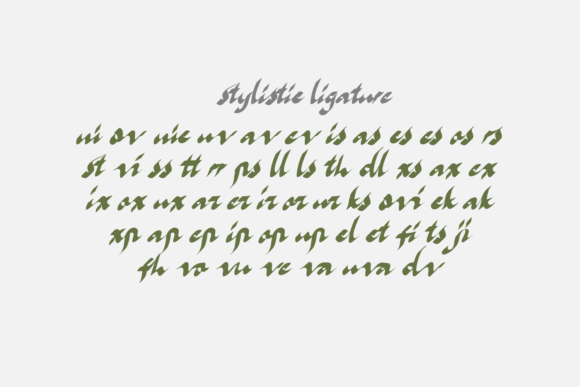 stylistic ligature
ni ov nie nv av ev is as es es os rs
st vi ss tt rr ps ll ls th dl xs ax ex
ix ox ux ar er ir or ur ks ovi ek ak
xp ap ep ip op up el et fi ts ji
fh vo vu ve va uva dv